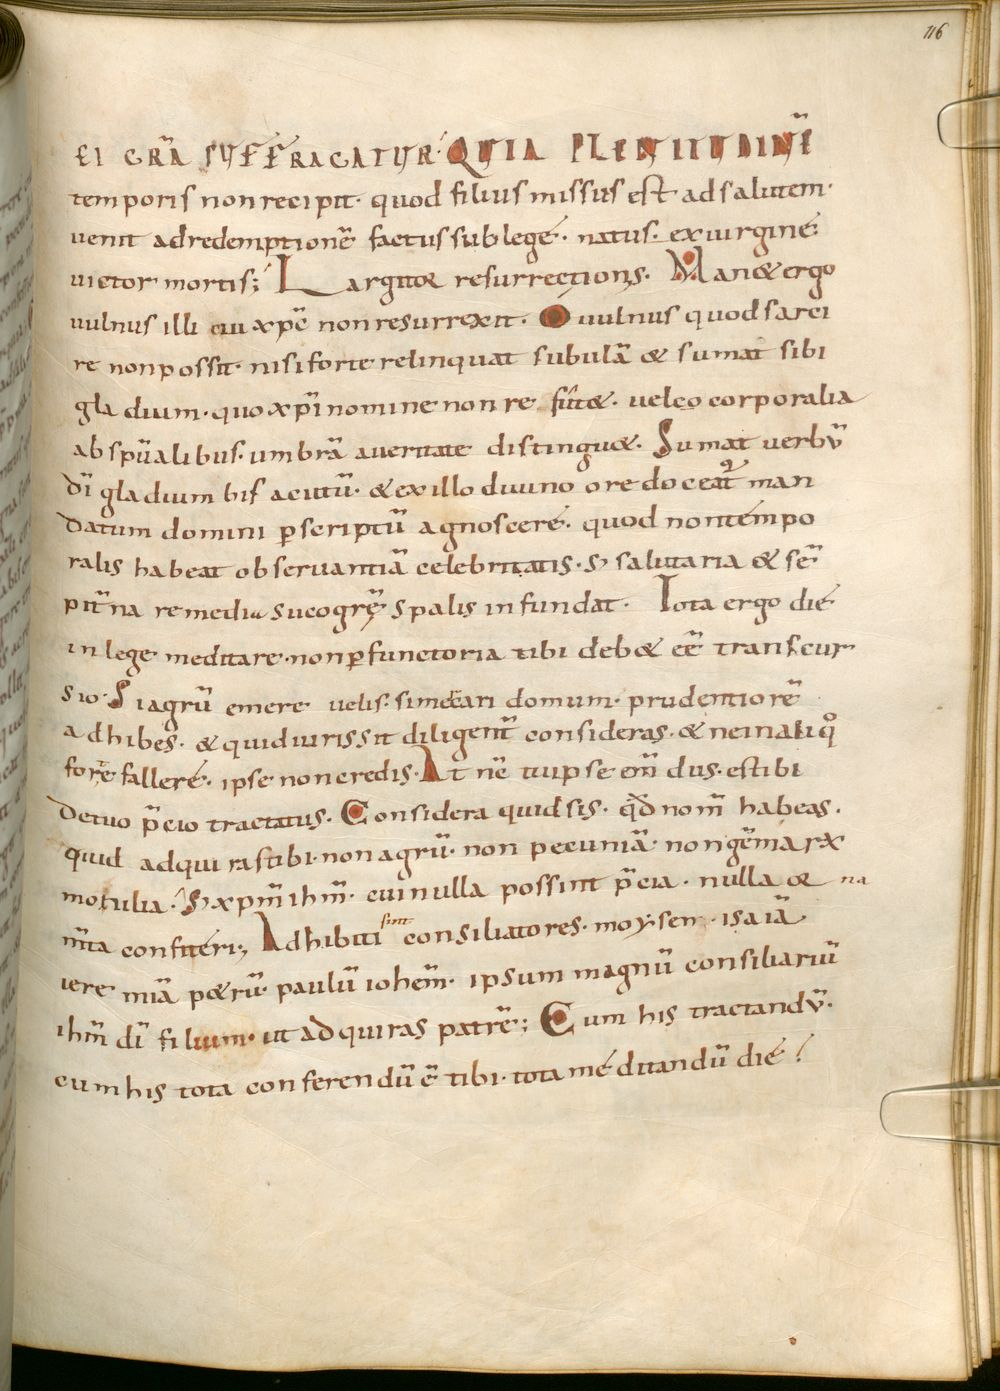 116
EI GRA͞ SUFFRAGATUR· QUIA PLENITUDINE͞
temporis non recipit· quod filius missus est ad salutem·
uenit ad redemptione͞ factus sub lege· natus· ex uirgine
uictor mortis; Largitor resurrectionis· Man& ergo
uulnus illi cui xp͞c non resurrexit· O uulnus quod sarci
re non possit· nisi forte relinquat subula͞ & sumat sibi
gladium· quo xp͞i nomine non re fut&· uel eo corporalia
ab sp͞ualibus· umbra͞ a ueritate distingu&· Sumat uerbu͞
d͞i gladium bis acutu͞· & ex illo diuino ore doceat᷑ man
datum domini p̱ scriptu͞ agnoscere· quod non tempo
ralis habeat obseruantia͞ celebritatis· s; salutaria & se͞
pit͞na remedia suco gr͞e sp͞alis infundat· Tota ergo die
in lege meditare· non p̱functoria tibi deb& e͞e transcur
sio· Si agru͞ emere uelis· si mercari domum· prudentiore͞
adhibes· & quid iuris sit diligent͞ consideras· & ne in aliqͦ
forte fallere· ipse non credis· At ne͞ tu ipse em͞dus· es tibi
de tuo p͞cio tractatus· Considera quid sis· q͞d nom͞ habeas·
quid adquiras tibi· non agru͞· non pecunia͞· non ge͞marx
motulia· S; xp͞m ih͞m· cui nulla possint p͞cia· nulla orna
m͞ta conferri; Adhibiti sint consiliatores· moysen· isaia͞
ieremia͞ p&ru͞· paulu͞ ioh͞em· ipsum magnu͞ consiliariu͞
ih͞m d͞i filium· ut adquiras patre͞; Cum his tractandu͞·
cum his tota conferendu͞ e͞ tibi· tota meditandu͞ die!